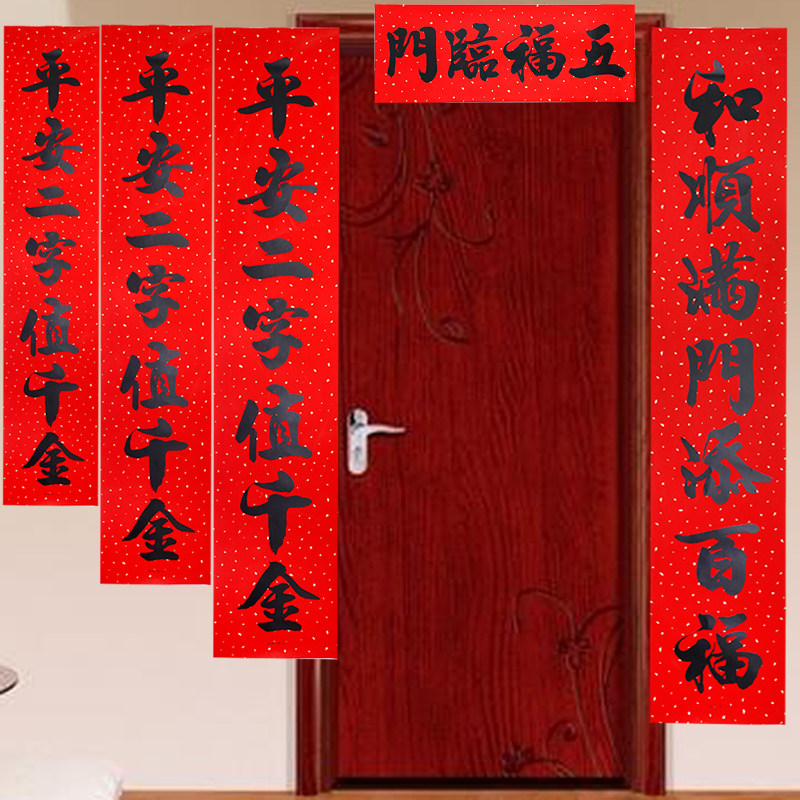 五福臨門
和順滿門添百福
平安二字值千金
平安二字值千金
平安二字值千金